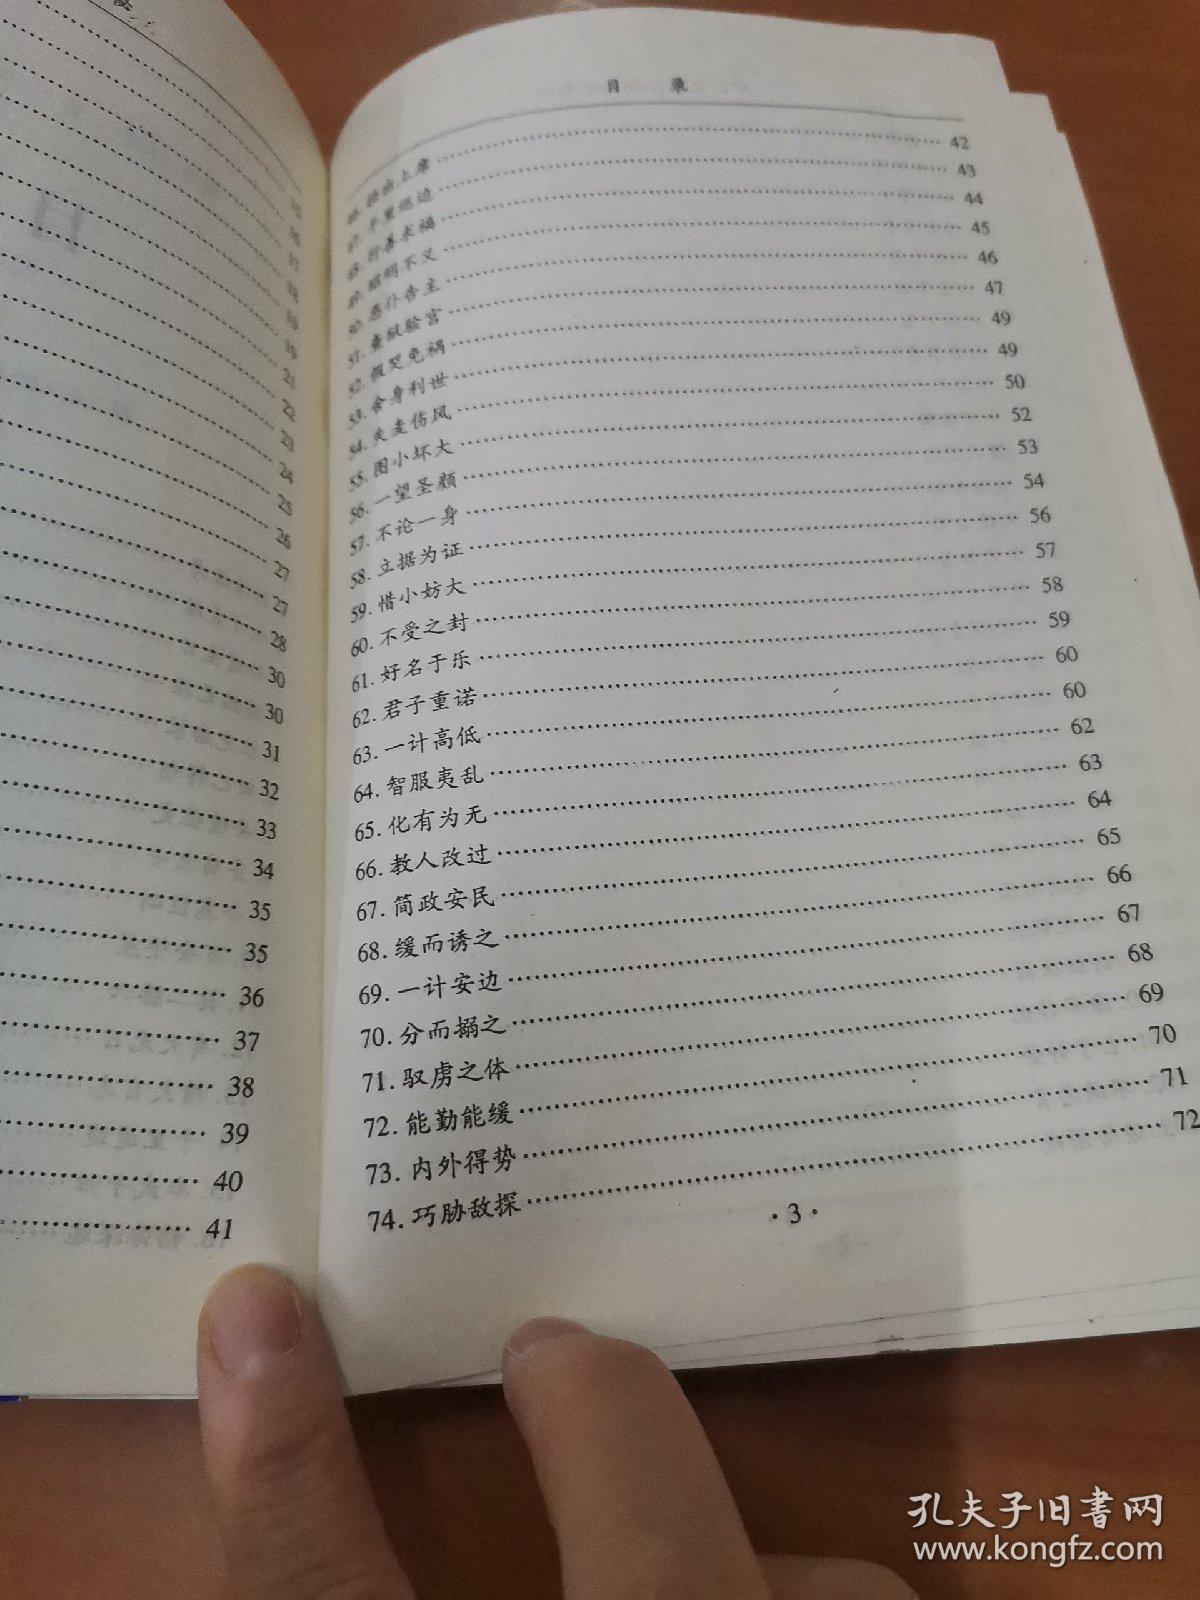 目 录
42
43
48. 行善求福 44
49. 聪明不义 45
50. 恶仆告主 46
51. 47
52. 假哭免祸 49
53. 舍身利世 49
54. 失麦伤风 50
55. 图小坏大 52
56. 一望圣颜 53
57. 不论一身 54
58. 立据为证 56
59. 惜小妨大 57
60. 不受之封 58
61. 好名于乐 59
62. 君子重诺 60
63. 一计高低 60
64. 智服夷乱 62
65. 化有为无 63
66. 教人改过 64
67. 简政安民 65
68. 缓而诱之 66
69. 一计安边 67
70. 分而搦之 68
71. 驭虏之体 69
72. 能勤能缓 70
73. 内外得势 71
74. 巧胁敌探 72
·3·
21
22
23
24
25
26
27
27
28
30
30
31
32
33
34
35
35
36
37
38
39
40
41
孔夫子旧书网
www.kongfz.com